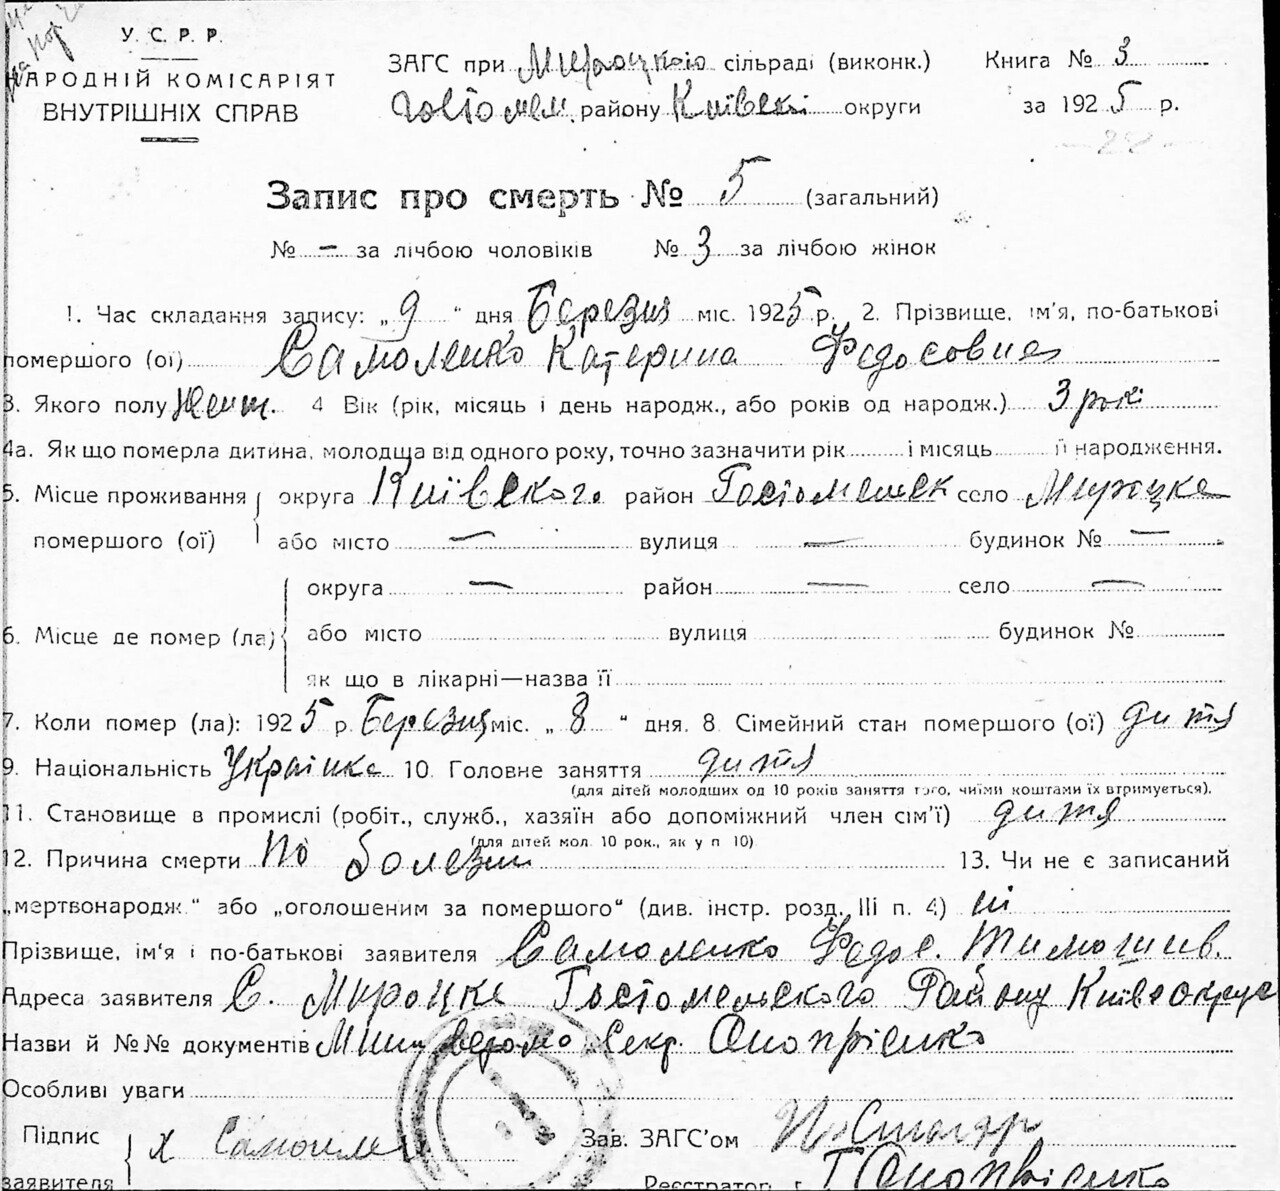 У. С. Р. Р.
НАРОДНІЙ КОМІСАРІЯТ
ВНУТРІШНІХ СПРАВ
ЗАГС при Мироцкою сільраді (виконк.) Книга № 3
Гостомел. району Київскої округи за 1925 р.
Запис про смерть № 5 (загальний)
№ — за лічбою чоловіків № 3 за лічбою жінок
1. Час складання запису: „9“ дня Березня міс. 1925 р. 2. Прізвище, ім'я, по-батькові
помершого (ої) Самоленко Катерина Федосовна
3. Якого полу Женш. 4 Вік (рік, місяць і день народж., або років од народж.) 3 рокі
4а. Як що померла дитина, молодща від одного року, точно зазначити рік і місяць її народження.
5. Місце проживання помершого (ої) округа Київского район Гостомельск село Мироцке
або місто — вулиця — будинок № —
6. Місце де помер (ла) округа — район — село —
або місто вулиця будинок №
як що в лікарні—назва її
7. Коли помер (ла): 1925 р. Березня міс. „8“ дня. 8 Сімейний стан помершого (ої) дитя
9. Національність Українка 10. Головне заняття дитя
(для дітей молодших од 10 років заняття того, чиїми коштами їх втримується).
11. Становище в промислі (робіт., служб., хазяїн або допоміжний член сім'ї) дитя
(для дітей мол. 10 рок., як у п 10)
12. Причина смерти по болезни 13. Чи не є записаний
„мертвонародж.“ або „оголошеним за помершого“ (див. інстр. розд. III п. 4) ні
Прізвище, ім'я і по-батькові заявителя Самоленко Федос. Тимошев.
Адреса заявителя С. Мироцке Гостомельского Району Київ округа
Назви й №№ документів Секр. Оноприенко
Особливі уваги
Підпис заявителя х Зав. ЗАГС'ом
Реєстратор Г Оноприенко